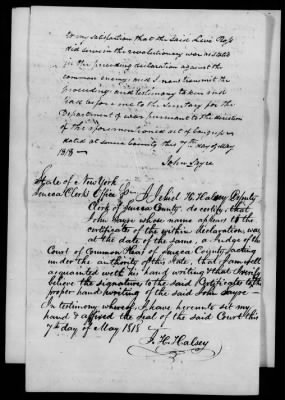 to my satisfaction that the said Levi
did serve in the revolutionary war as stated
in the preceding declaration against the
common enemy, and I now transmit the
proceedings and testimony taken and
had before me to the Secretary for the
Department of war pursuant to the direction
of the aforementioned act of Congress
dated at Seneca County this 7th day of May
1818 —
John Sayre
State of New York
Seneca Clerks Office I Jehiel H. Halsey Deputy
Clerk of Seneca County do certify, that
John Sayre whose name appears to the
certificates of the within declaration, was
at the date of the same, a Judge of the
Court of Common Pleas of Seneca County, acting
under the authority of this State, that I am well
acquainted with his hand writing & that I verily
believe the signature to the said Certificates to be the
proper hand writing of the said John Sayre —
In testimony whereof, I have hereunto set my
hand & affixed the Seal of the said Court this
7th day of May 1818
J. H. Halsey